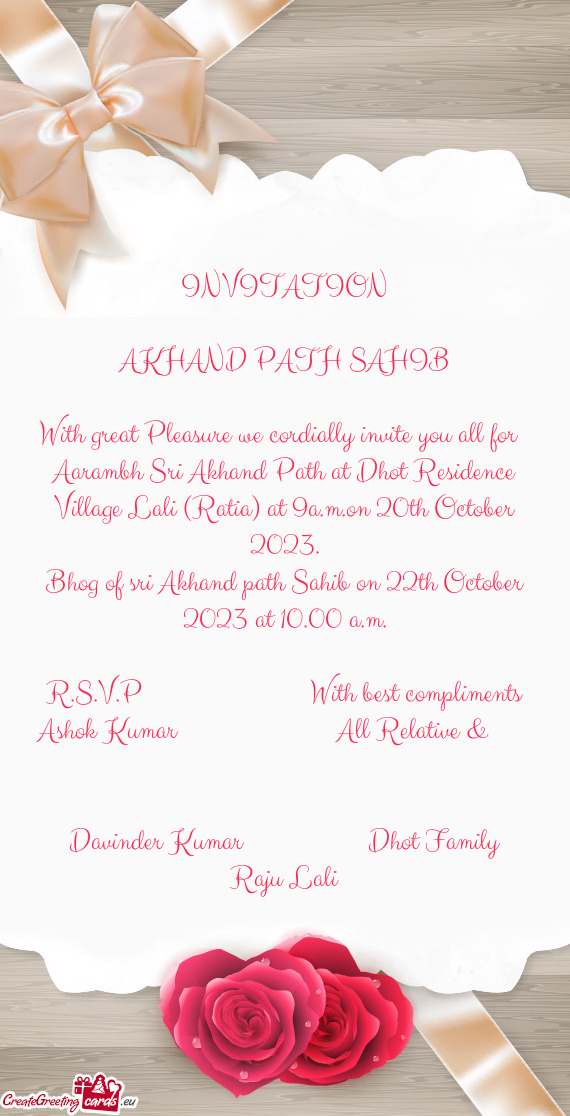 INVITATION
AKHAND PATH SAHIB
With great Pleasure we cordially invite you all for
Aarambh Sri Akhand Path at Dhot Residence
Village Lali (Ratia) at 9a.m.on 20th October
2023.
Bhog of sri Akhand path Sahib on 22th October
2023 at 10.00 a.m.
R.S.V.P With best compliments
Ashok Kumar All Relative &
Davinder Kumar Dhot Family
Raju Lali
CreateGreetingcards.eu